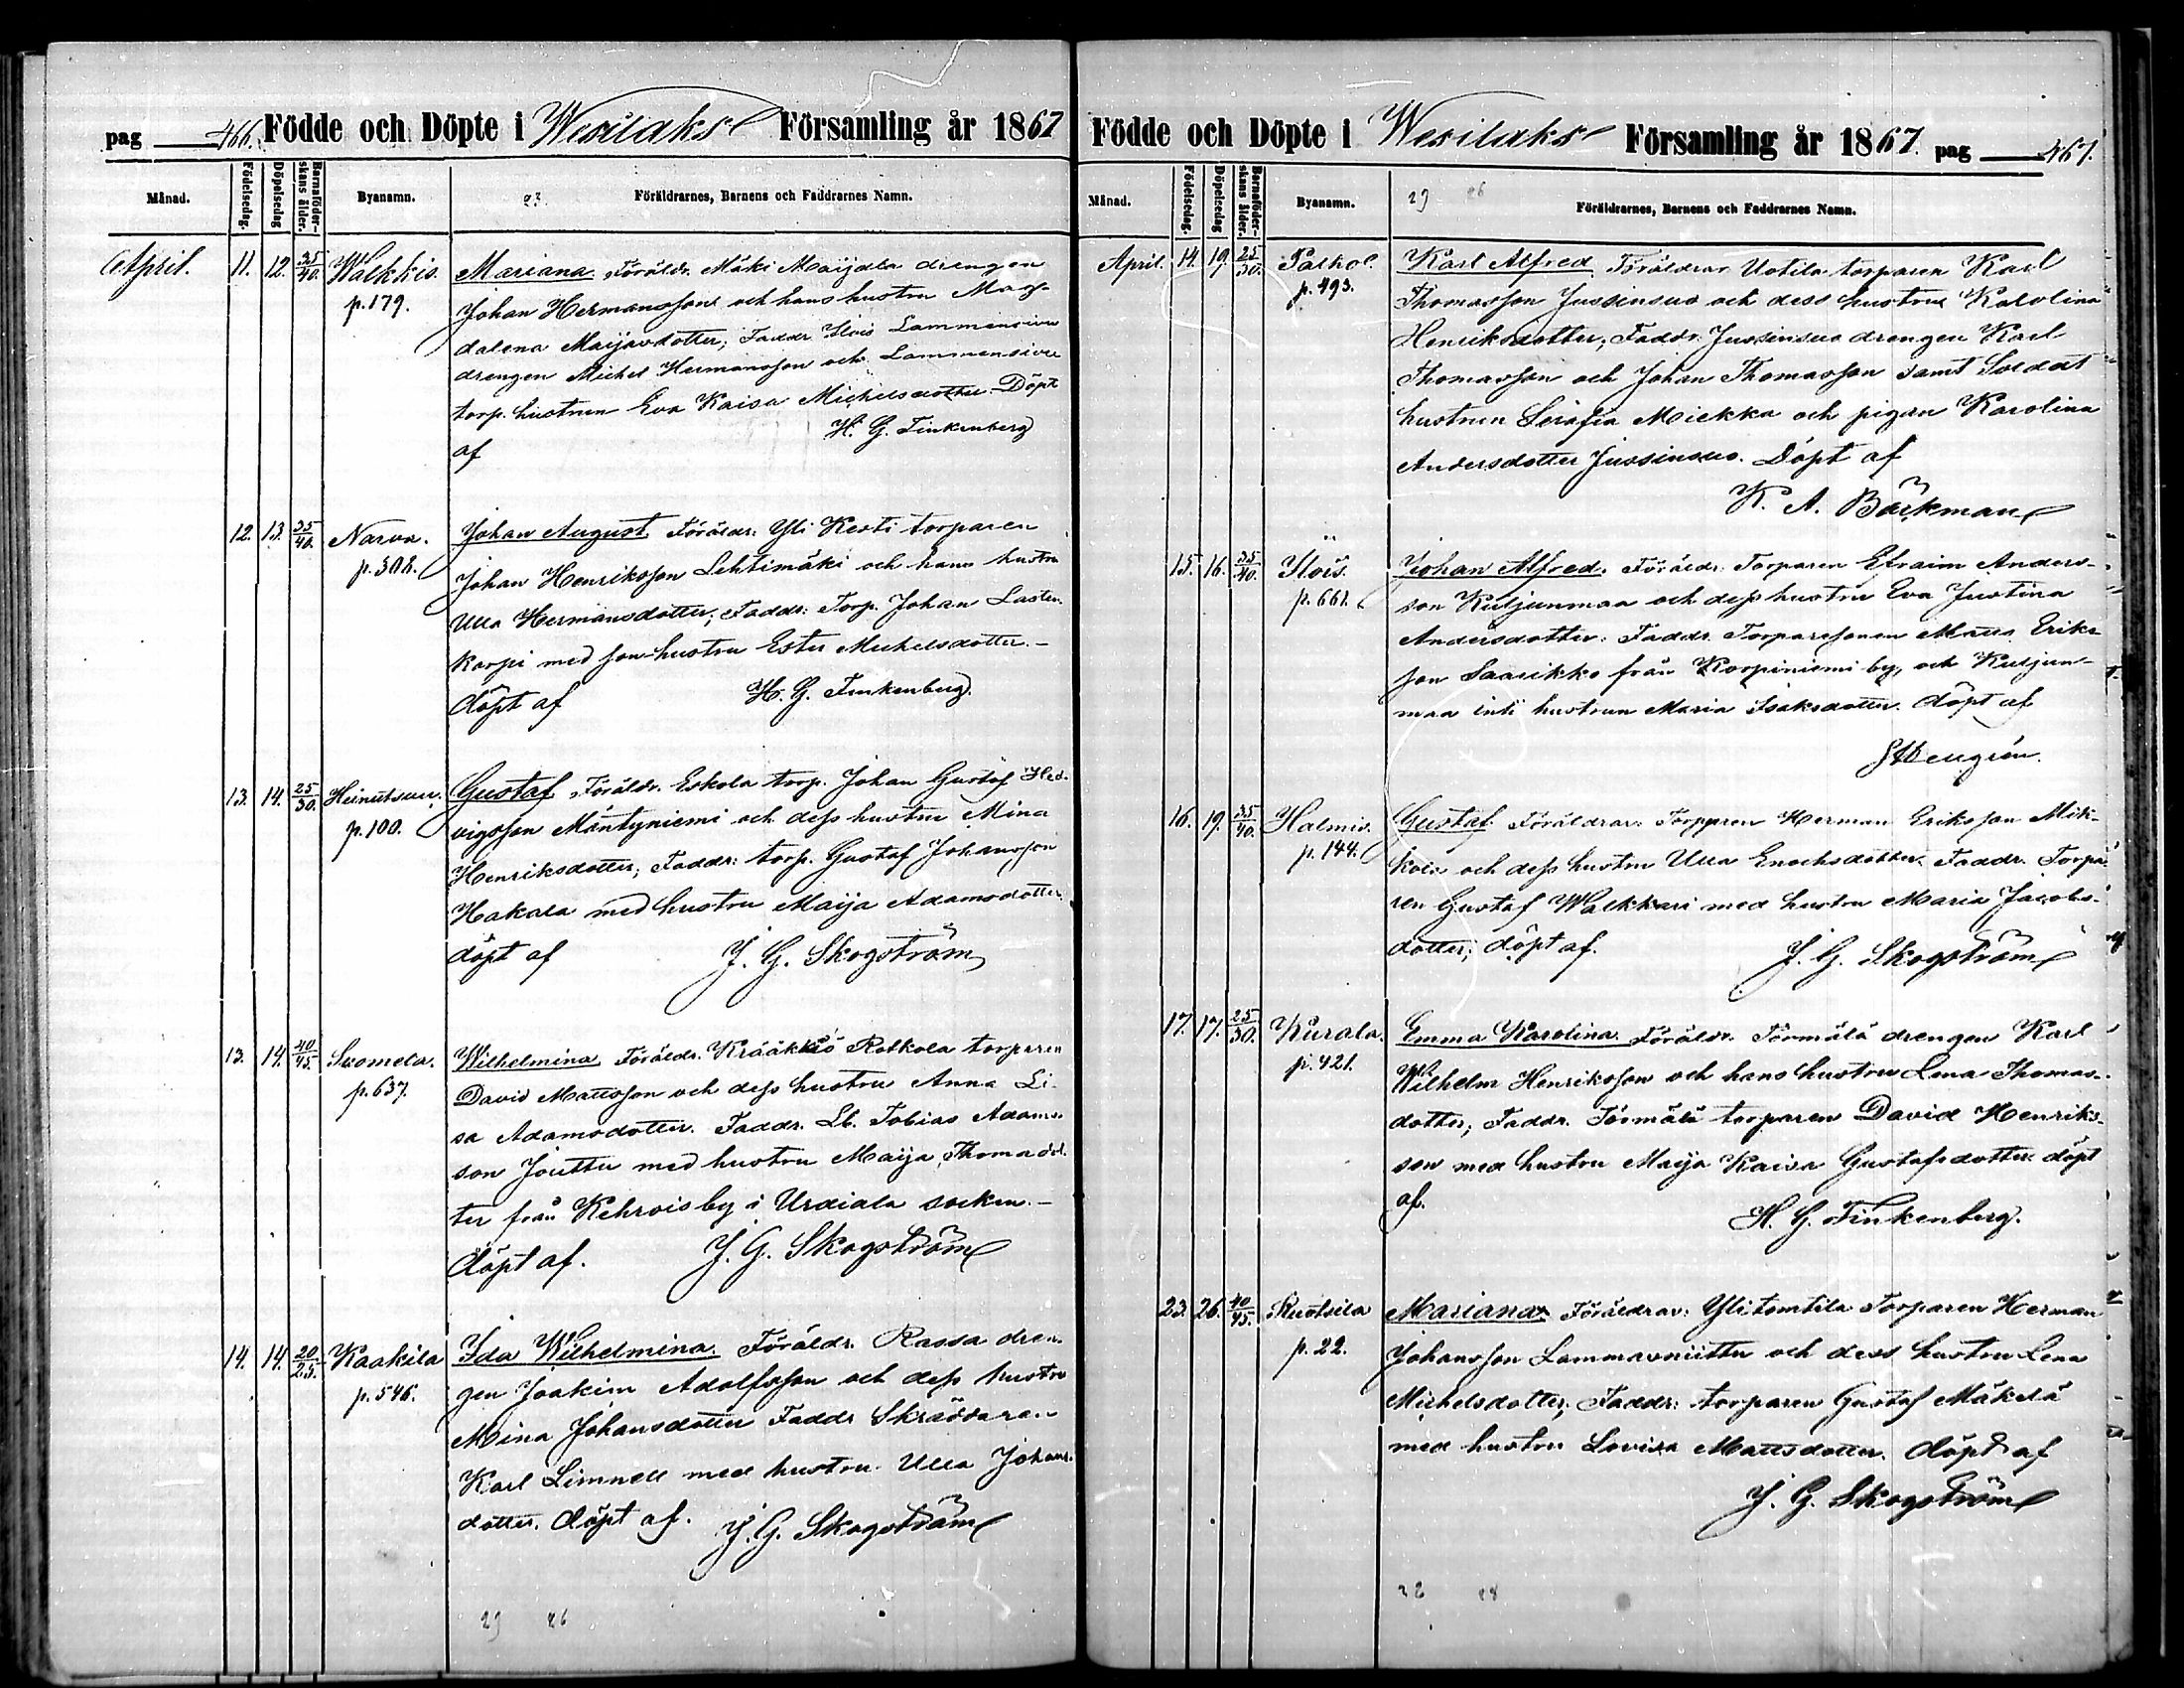 pag 466. Födde och Döpte i Wesilaks Församling år 1867
Månad. Födelsedag. Döpelsedag Barnaföderskans ålder. Byanamn. 23. Föräldrarnes, Barnens och Faddrarnes Namn.
April. 11. 12. 35/40. Walkkis. Mariana. Föräldr. Mäki Maijala drengen
p. 179. Johan Hermansson och hans hustru Mag-
dalena Maijasdotter; Faddr. Ilois Lammensivu
drengen Michel Hermansson och Lammensivu
torp. hustrun Eva Kaisa Michelsdotter. Döpt
af H. G. Finkenberg
12. 13. 35/40. Narva. Johan August. Föräldr. Yli Kesti torparen
p. 308. Johan Henriksson Lehtimäki och hans hustru
Ulla Hermansdotter; Faddr: Torp. Johan Lasten-
korpi med son-hustru Ester Michelsdotter. –
döpt af H. G. Finkenberg.
13. 14. 25/30. Heinutsuu. Gustaf. Föräldr. Eskola torp. Johan Gustaf Hed-
p. 100. vigsson Mäntyniemi och dess hustru Mina
Henriksdotter; Faddr: torp. Gustaf Johansson
Hakala med hustru Maija Adamsdotter.
döpt af J. G. Skogström
13. 14. 40/45. Suomela. Wilhelmina. Föräldr. Rotkola torparen
p. 637. David Mattsson och dess hustru Anna Li-
sa Adamsdotter. Faddr. Lb. Tobias Adams-
son Jouttu med hustru Maija Thomasdot-
ter från Kehrois by i Urdiala socken. –
döpt af. J. G. Skogström
14. 14. 20/25. Kaakila Ida Wilhelmina. Föräldr. Rassa dren-
p. 546. gen Joakim Adolfsson och dess hustru
Mina Johansdotter Faddr Skräddaren
Karl Limnell med hustru Ulla Johans-
dotter. döpt af. J. G. Skogström
29 26
Födde och Döpte i Wesilaks Församling år 1867. pag 467.
Månad. Födelsedag. Döpelsedag Barnaföderskans ålder. Byanamn. 29 26 Föräldrarnes, Barnens och Faddrarnes Namn.
April. 14. 19. 25/30. Palhol. Karl Alfred. Föräldrar Uotila torparen Karl
p. 493. Thomasson Jussinsuo och dess hustru Karolina
Henriksdotter; Faddr. Jussinsuo drengen Karl
Thomasson och Johan Thomasson samt Soldat
hustrun Serafia Miekka och pigan Karolina
Andersdotter Jussinsuo. Döpt af
K. A. Bäckman
15. 16. 35/40. Ilois. Johan Alfred. Föräldr. Torparen Efraim Anders-
p. 661. son Kuljunmaa och dess hustru Eva Justina
Andersdotter: Faddr. Torparesonen Matts Eriks-
son Saarikko från Korpiniemi by, och Kuljun-
maa inh: hustrun Maria Isaksdotter. döpt af
16. 19. 35/40. Halmis. Gustaf. Föräldrar: Torparen Herman Eriksson Mik-
p. 144. kola och dess hustru Ulla Enochsdotter. Faddr. Torpa-
ren Gustaf Walkkari med hustru Maria Jacobs-
dotter; döpt af. J. G. Skogström
17. 17. 25/30. Kurala. Emma Karolina. Föräldr. Törmälä drengen Karl
p. 421. Wilhelm Henriksson och hans hustru Lena Thomas-
dotter; Faddr. Törmälä torparen David Henriks-
son med hustru Maija Kaisa Gustafsdotter. döpt
af. H. G. Finkenberg.
23. 26. 40/45. Ruotsila Mariana. Föräldrar. Ylitomtila Torparen Herman
p. 22. Johansson Lammasniittu och dess hustru Lena
Michelsdotter; Faddr: torparen Gustaf Mäkelä
med hustru Lovisa Mattsdotter. döpt af
J. G. Skogström